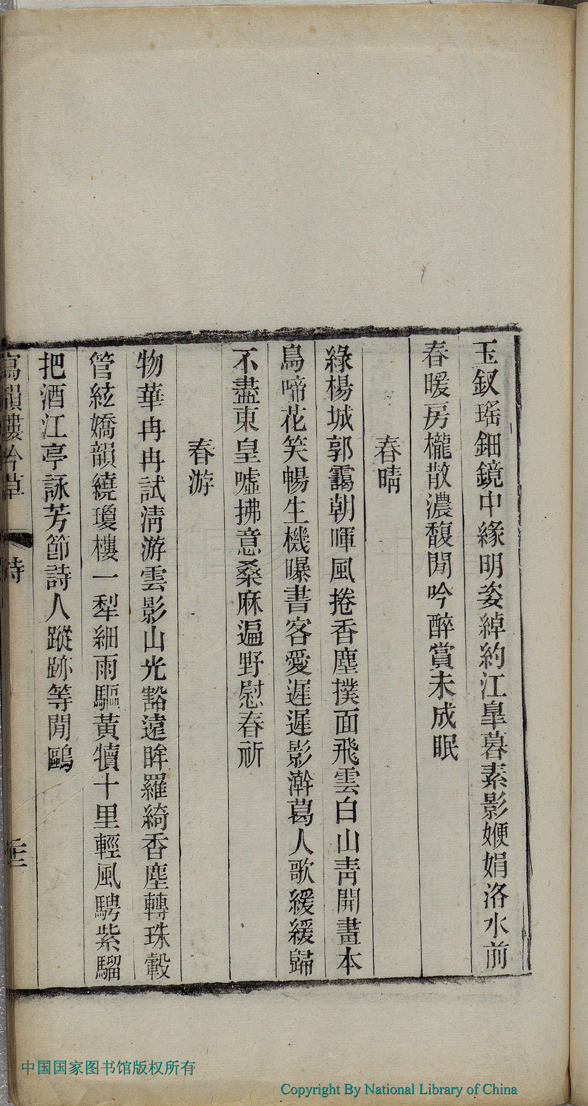 玉釵瑤鈿鏡中緣明姿綽約江皐暮素影娉娟洛水前
春暖房櫳散濃馥閒吟醉賞未成眠
春晴
綠楊城郭靄朝暉風捲香塵撲面飛雲白山靑開畫本
鳥啼花笑暢生機曝書客愛遲遲影澣葛人歌緩緩歸
不盡東皇噓拂意桑麻遍野慰春祈
春游
物華冉冉試淸游雲影山光豁遠眸羅綺香塵轉珠轂
管絃嬌韻繞瓊樓一犁細雨驅黃犢十里輕風騁紫騮
把酒江亭詠芳節詩人蹤跡等閒鷗
寫韻樓吟草
詩
中国国家图书馆版权所有
Copyright By National Library of China